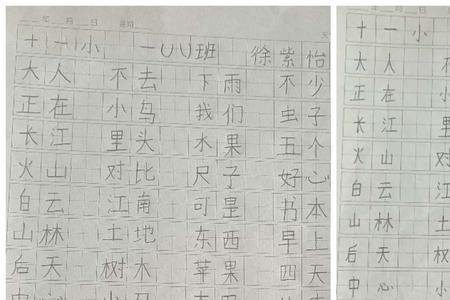 年 月 日 星期
十一小 一 班 徐紫怡
大人 不去 下雨 不少
正在 小鸟 我们 虫子
长江 里头 水果 五个
火山 对比 尺子 好心
白云 江南 可是 书本
山林 土地 东西 早上
后天 树木 苹果 四天
十一小
大人
正在 小
长江 里
火山 对
白云 江
山林 土
后天 权
中心 小